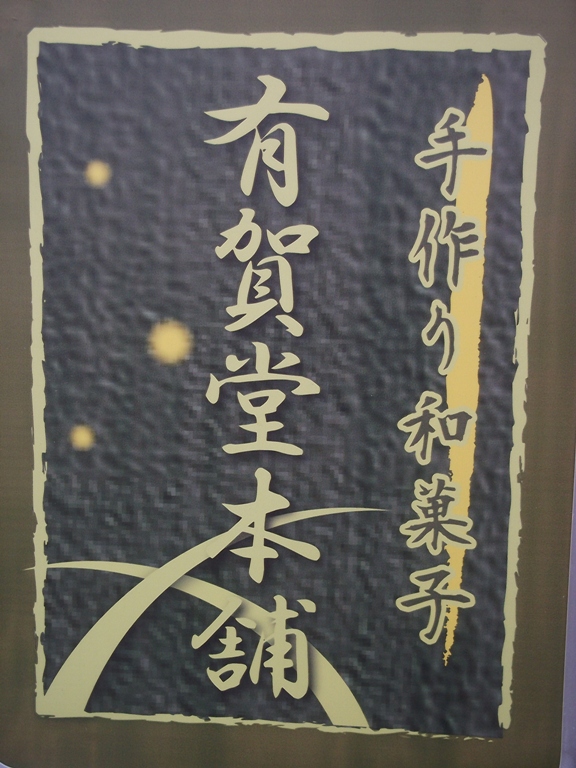 手作り和菓子
有賀堂本舗